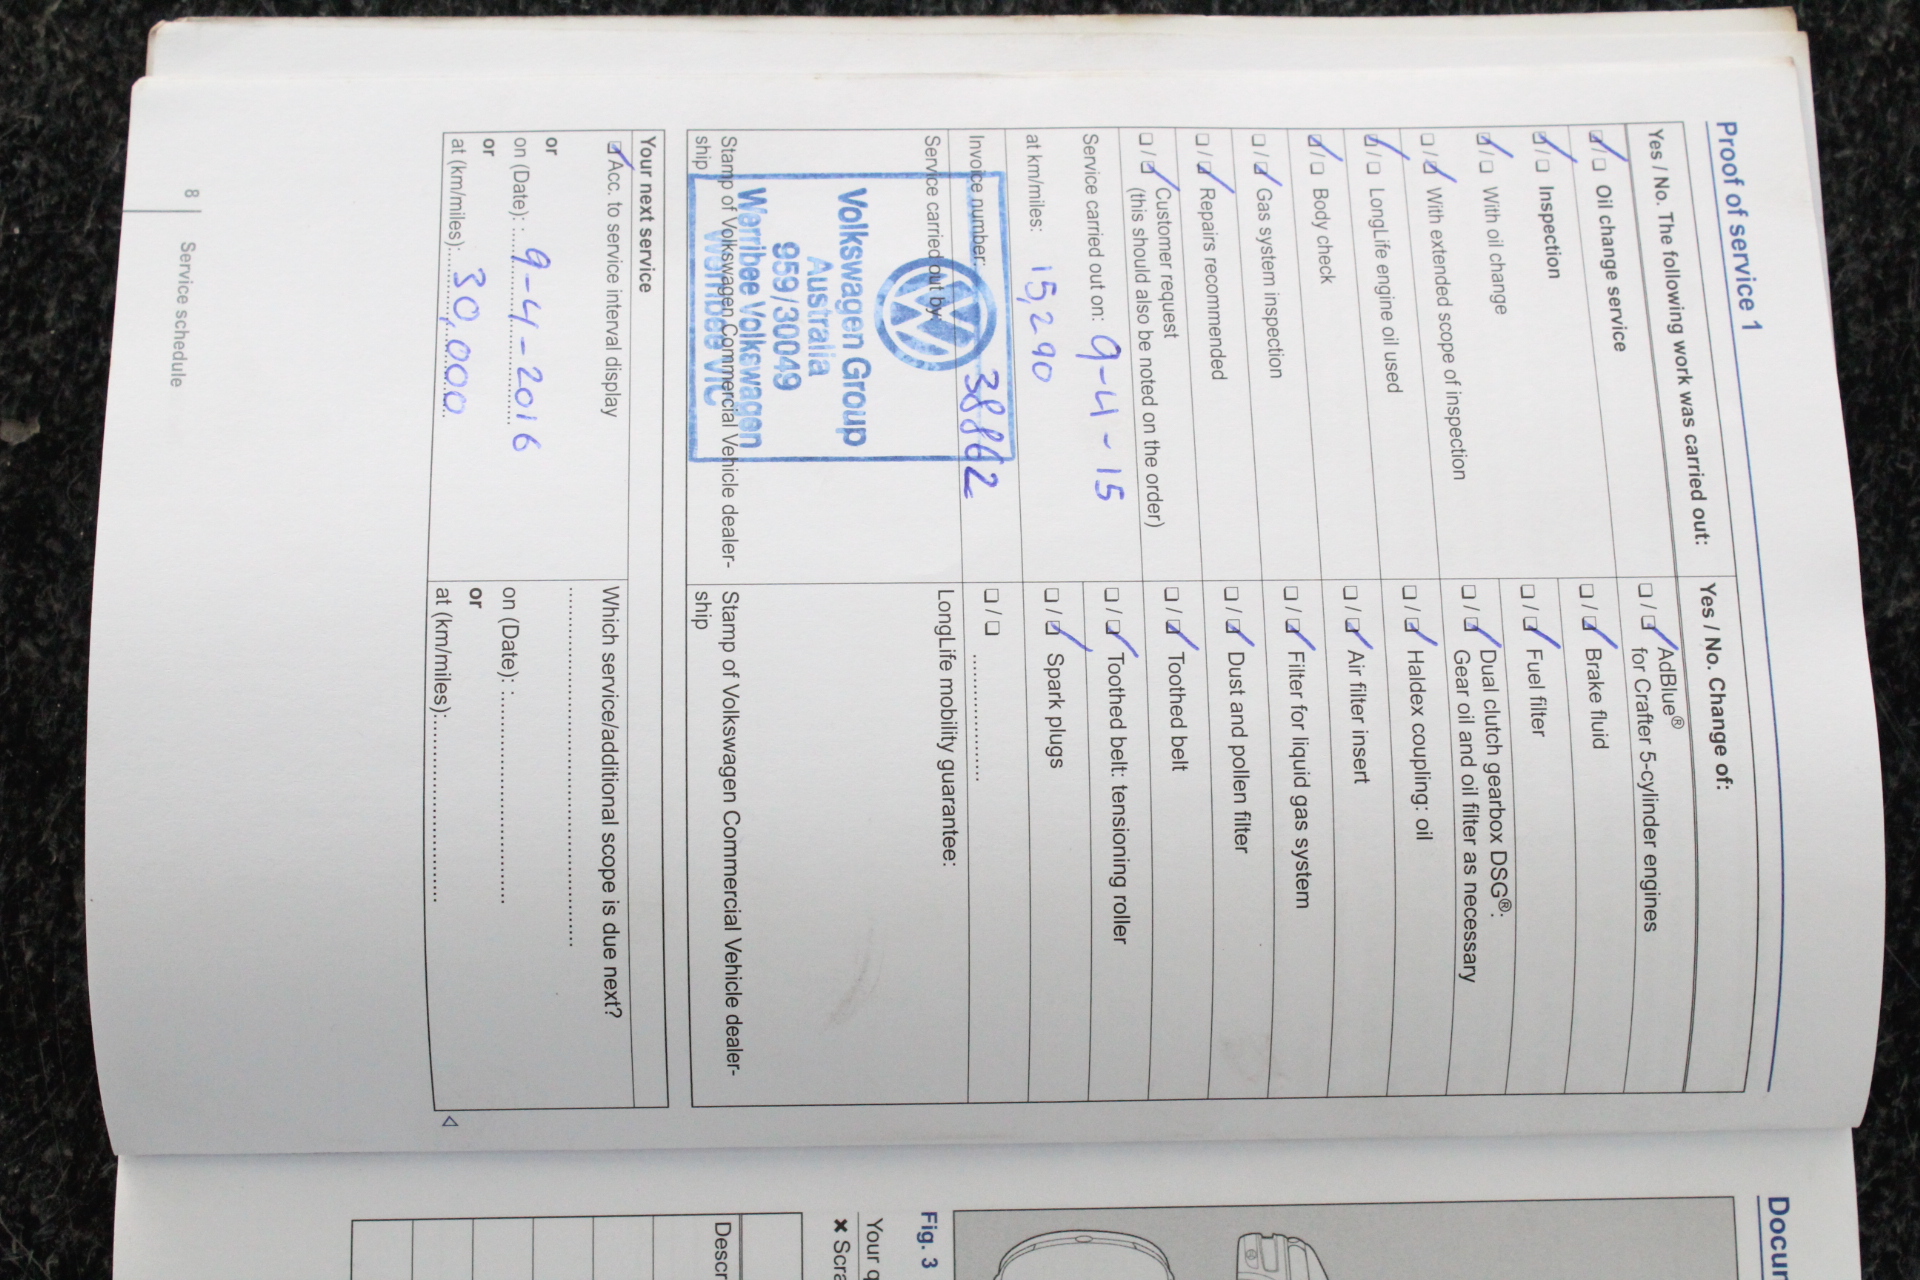 Proof of service 1
Yes / No. The following work was carried out:
☑ / ☐ Oil change service
☑ / ☐ Inspection
☑ / ☐ With oil change
☐ / ☑ With extended scope of inspection
☑ / ☐ LongLife engine oil used
☑ / ☐ Body check
☐ / ☑ Gas system inspection
☐ / ☑ Repairs recommended
☐ / ☑ Customer request
(this should also be noted on the order)
Service carried out on: 9-4-15
at km/miles: 15,290
Invoice number: 38862
Service carried out by:
Volkswagen Group
Australia
959/30049
Werribee Volkswagen
Werribee VIC
Stamp of Volkswagen Commercial Vehicle dealer-
ship
Yes / No. Change of:
☐ / ☑ AdBlue®
for Crafter 5-cylinder engines
☐ / ☑ Brake fluid
☐ / ☑ Fuel filter
☐ / ☑ Dual clutch gearbox DSG®:
Gear oil and oil filter as necessary
☐ / ☑ Haldex coupling: oil
☐ / ☑ Air filter insert
☐ / ☑ Filter for liquid gas system
☐ / ☑ Dust and pollen filter
☐ / ☑ Toothed belt
☐ / ☑ Toothed belt: tensioning roller
☐ / ☑ Spark plugs
☐ / ☐ ....................
LongLife mobility guarantee:
Stamp of Volkswagen Commercial Vehicle dealer-
ship
Your next service
☑ Acc. to service interval display
or
on (Date): 9-4-2016
or
at (km/miles): 30,000
Which service/additional scope is due next?
on (Date):
or
at (km/miles):
8 Service schedule
Docu
Fig. 3
Your q
✖ Scra
Descr